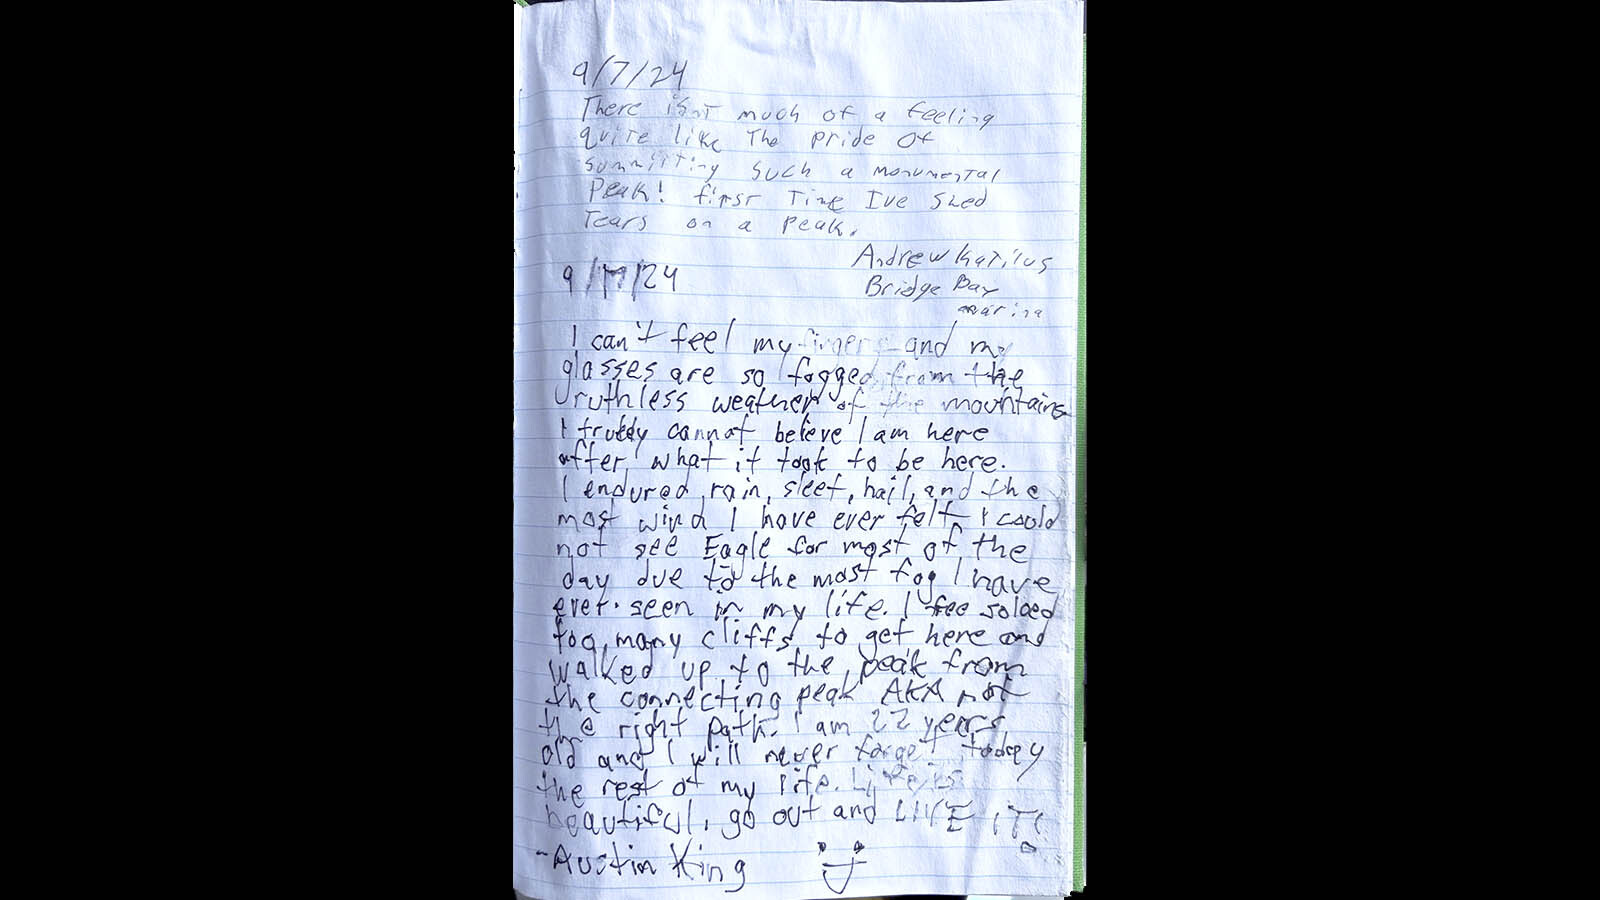 9/7/24
There isnt much of a feeling
quite like the pride of
summitting such a monumental
Peak! first time Ive shed
Tears on a Peak.
Andrew
Bridge Bay
marina
9/17/24
I can't feel my fingers and my
glasses are so fogged from the
ruthless weather of the mountains
I truely cannot believe I am here
after what it took to be here.
I endured rain, sleet, hail, and the
most wind I have ever felt I could
not see Eagle for most of the
day due to the most fog I have
ever seen in my life. I free soloed
too many cliffs to get here and
walked up to the peak from
the connecting peak AKA not
the right path. I am 22 years
old and I will never forget today
the rest of my life. Life is
beautiful, go out and LIVE IT!
-Austin King